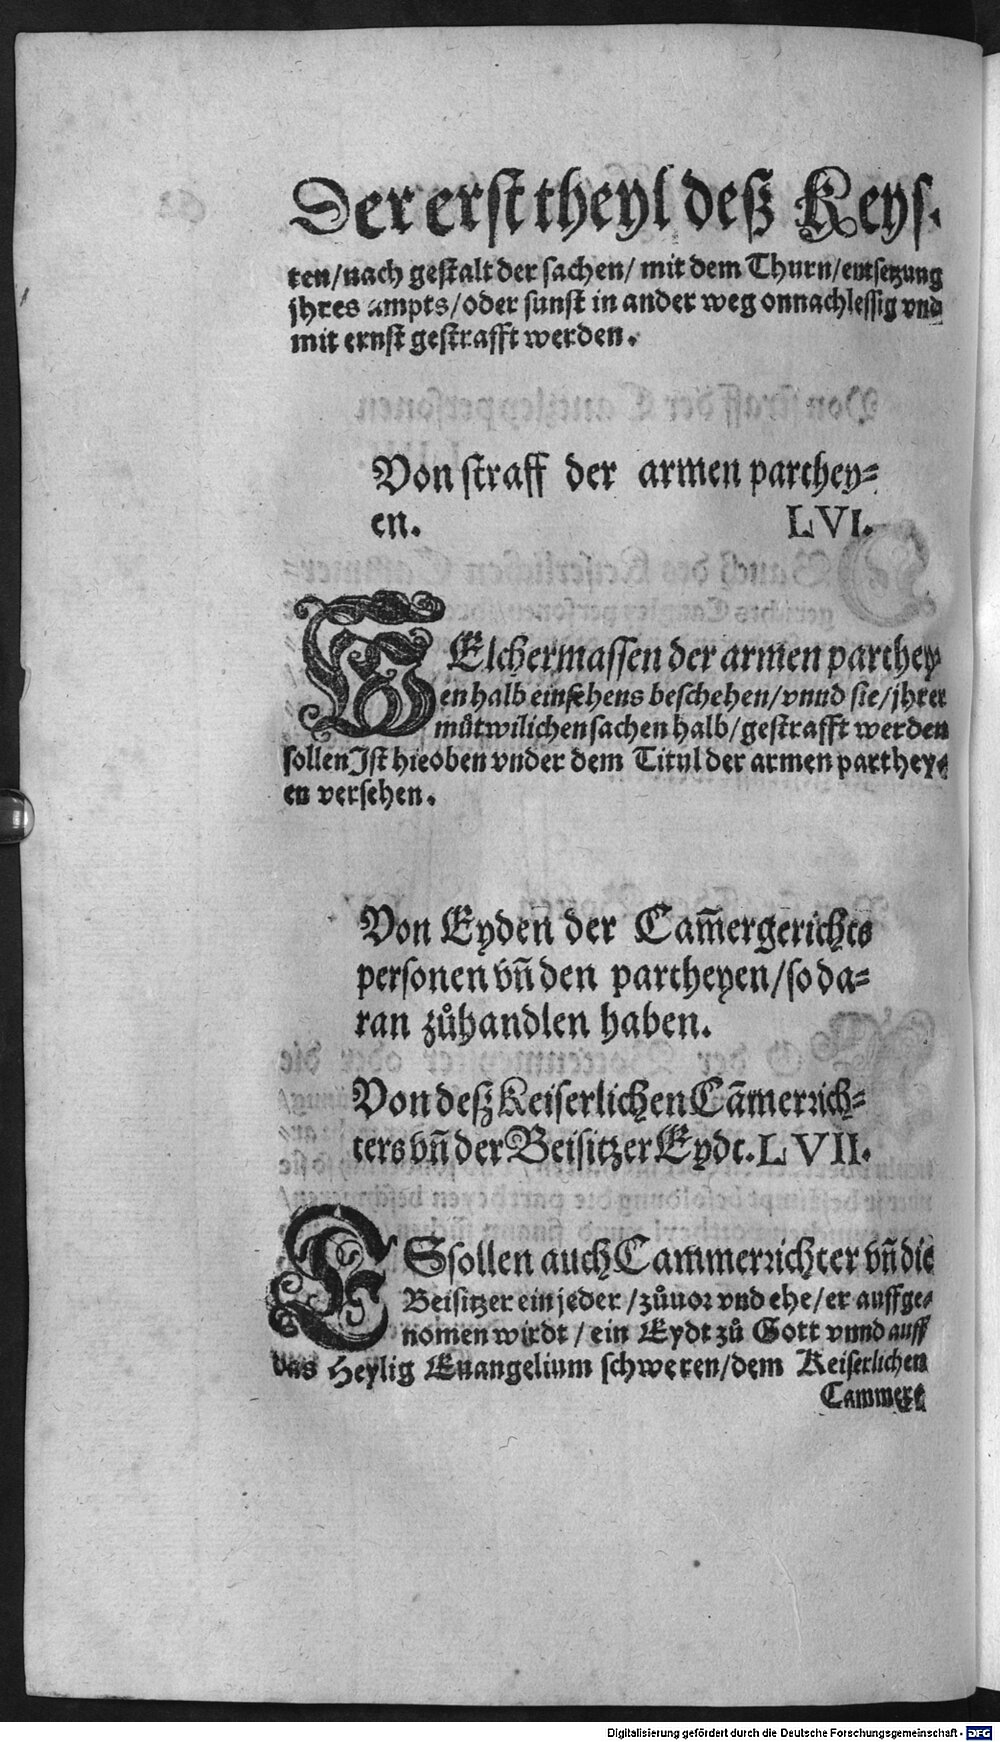 Der erst theyl deß Keys.
ten/nach gestalt der sachen/ mit dem Thurn/entsetzung
jhres ampts/oder sunst in ander weg onnachlessig vnd
mit ernst gestrafft werden.
Von straff der armen parthey-
en. LVI.
WElchermassen der armen parthey
en halb einsehens beschehen/vnnd sie/jhrer
můtwilichen sachen halb/gestrafft werden
sollen Ist hieoben vnder dem Tityl der armen parthey-
en versehen.
Von Eyden der Cam̄ergerichts
personen vn̄ den partheyen/so da-
ran zůhandlen haben.
Von deß Keiserlichen Cam̄errich-
ters vn̄ der Beisitzer Eydt. LVII.
ES sollen auch Cammerrichter vn̄ die
Beisitzer ein jeder/zůuor vnd ehe/er auffge-
nomen wirdt/ein Eydt zů Gott vnnd auff
das Heylig Euangelium schweren/dem Keiserlichen
Cammer-
Digitalisierung gefördert durch die Deutsche Forschungsgemeinschaft - DFG